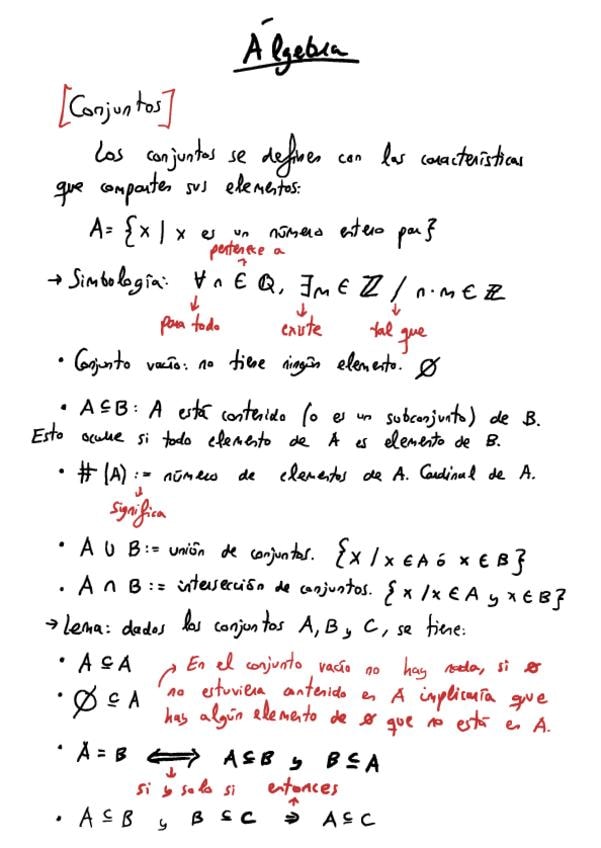 Álgebra
[Conjuntos]
Los conjuntos se definen con las características
que comparten sus elementos:
A = {x | x es un número entero par}
pertenece a
→ Simbología: ∀ n ∈ ℚ, ∃ m ∈ ℤ / n · m ∈ ℤ
para todo existe tal que
• Conjunto vacío: no tiene ningún elemento. ∅
• A ⊆ B: A está contenido (o es un subconjunto) de B.
Esto ocurre si todo elemento de A es elemento de B.
• # (A) := número de elementos de A. Cardinal de A.
significa
• A ∪ B := unión de conjuntos. {x / x ∈ A ó x ∈ B}
• A ∩ B := intersección de conjuntos. {x / x ∈ A y x ∈ B}
→ Lema: dados los conjuntos A, B y C, se tiene:
• A ⊆ A
• ∅ ⊆ A
→ En el conjunto vacío no hay nada, si ∅
no estuviera contenido en A implicaría que
hay algún elemento de ∅ que no está en A.
• A = B ⟺ A ⊆ B y B ⊆ A
si y solo si entonces
• A ⊆ B y B ⊆ C ⇒ A ⊆ C